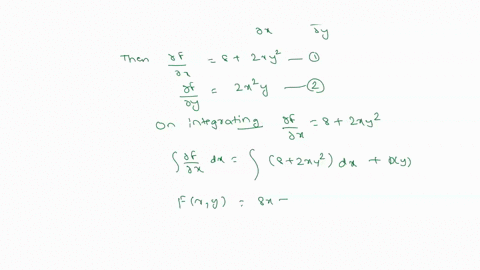 ∂x ∂y
Then ∂F/∂x = 8 + 2xy² — ①
∂F/∂y = 2x²y — ②
On Integrating ∂F/∂x = 8 + 2xy²
∫ ∂F/∂x dx = ∫ (8 + 2xy²) dx + Q(y)
F(x,y) = 8x -